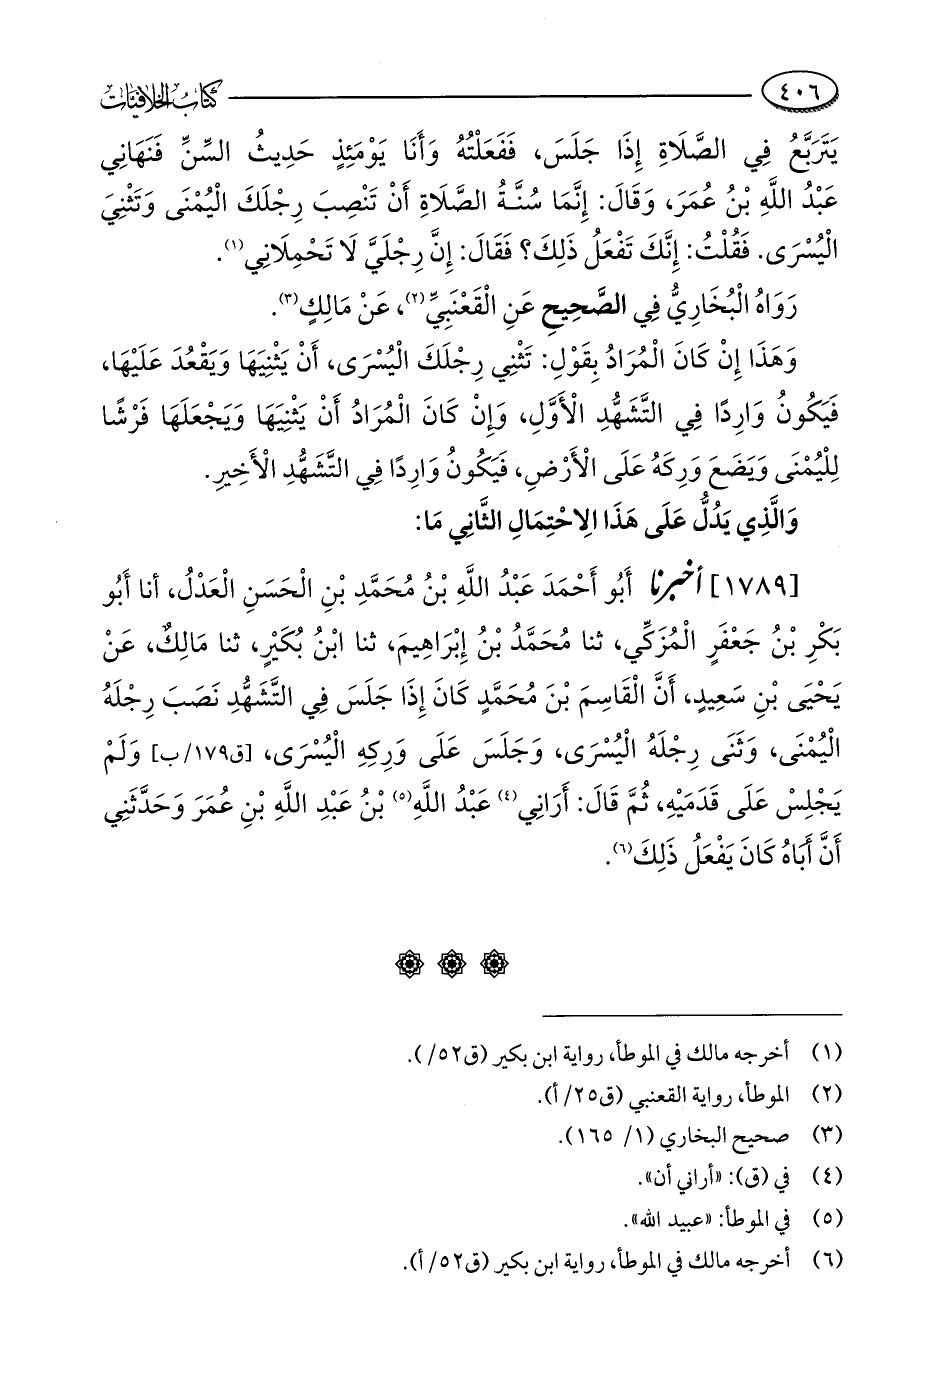 ٤٠٦ كتاب الخلافيات
يَتَرَبَّعُ فِي الصَّلَاةِ إِذَا جَلَسَ، فَفَعَلْتُهُ وَأَنَا يَوْمَئِذٍ حَدِيثُ السِّنِّ فَنَهَانِي
عَبْدُ اللَّهِ بْنُ عُمَرَ، وَقَالَ: إِنَّمَا سُنَّةُ الصَّلَاةِ أَنْ تَنْصِبَ رِجْلَكَ الْيُمْنَى وَتَثْنِيَ
الْيُسْرَى. فَقُلْتُ: إِنَّكَ تَفْعَلُ ذَلِكَ؟ فَقَالَ: إِنَّ رِجْلَيَّ لَا تَحْمِلَانِي(١).
رَوَاهُ الْبُخَارِيُّ فِي الصَّحِيحِ عَنِ الْقَعْنَبِيِّ(٢)، عَنْ مَالِكٍ(٣).
وَهَذَا إِنْ كَانَ الْمُرَادُ بِقَوْلِ: تَثْنِي رِجْلَكَ الْيُسْرَى، أَنْ يَثْنِيَهَا وَيَقْعُدَ عَلَيْهَا،
فَيَكُونُ وَارِدًا فِي التَّشَهُّدِ الْأَوَّلِ، وَإِنْ كَانَ الْمُرَادُ أَنْ يَثْنِيَهَا وَيَجْعَلَهَا فَرْشًا
لِلْيُمْنَى وَيَضَعَ وَرِكَهُ عَلَى الْأَرْضِ، فَيَكُونُ وَارِدًا فِي التَّشَهُّدِ الْأَخِيرِ.
وَالَّذِي يَدُلُّ عَلَى هَذَا الِاحْتِمَالِ الثَّانِي مَا:
[١٧٨٩] أخبرنا أَبُو أَحْمَدَ عَبْدُ اللَّهِ بْنُ مُحَمَّدِ بْنِ الْحَسَنِ الْعَدْلُ، أنا أَبُو
بَكْرِ بْنُ جَعْفَرٍ الْمُزَكِّي، ثنا مُحَمَّدُ بْنُ إِبْرَاهِيمَ، ثنا ابْنُ بُكَيْرٍ، ثنا مَالِكٌ، عَنْ
يَحْيَى بْنِ سَعِيدٍ، أَنَّ الْقَاسِمَ بْنَ مُحَمَّدٍ كَانَ إِذَا جَلَسَ فِي التَّشَهُّدِ نَصَبَ رِجْلَهُ
الْيُمْنَى، وَثَنَى رِجْلَهُ الْيُسْرَى، وَجَلَسَ عَلَى وَرِكِهِ الْيُسْرَى، [ق١٧٩/ب] وَلَمْ
يَجْلِسْ عَلَى قَدَمَيْهِ، ثُمَّ قَالَ: أَرَانِي(٤) عَبْدُ اللَّهِ(٥) بْنُ عَبْدِ اللَّهِ بْنِ عُمَرَ وَحَدَّثَنِي
أَنَّ أَبَاهُ كَانَ يَفْعَلُ ذَلِكَ(٦).
(١) أخرجه مالك في الموطأ، رواية ابن بكير (ق٥٢/ ).
(٢) الموطأ، رواية القعنبي (ق٢٥/ أ).
(٣) صحيح البخاري (١/ ١٦٥).
(٤) في (ق): «أراني أن».
(٥) في الموطأ: «عبيد الله».
(٦) أخرجه مالك في الموطأ، رواية ابن بكير (ق٥٢/ أ).